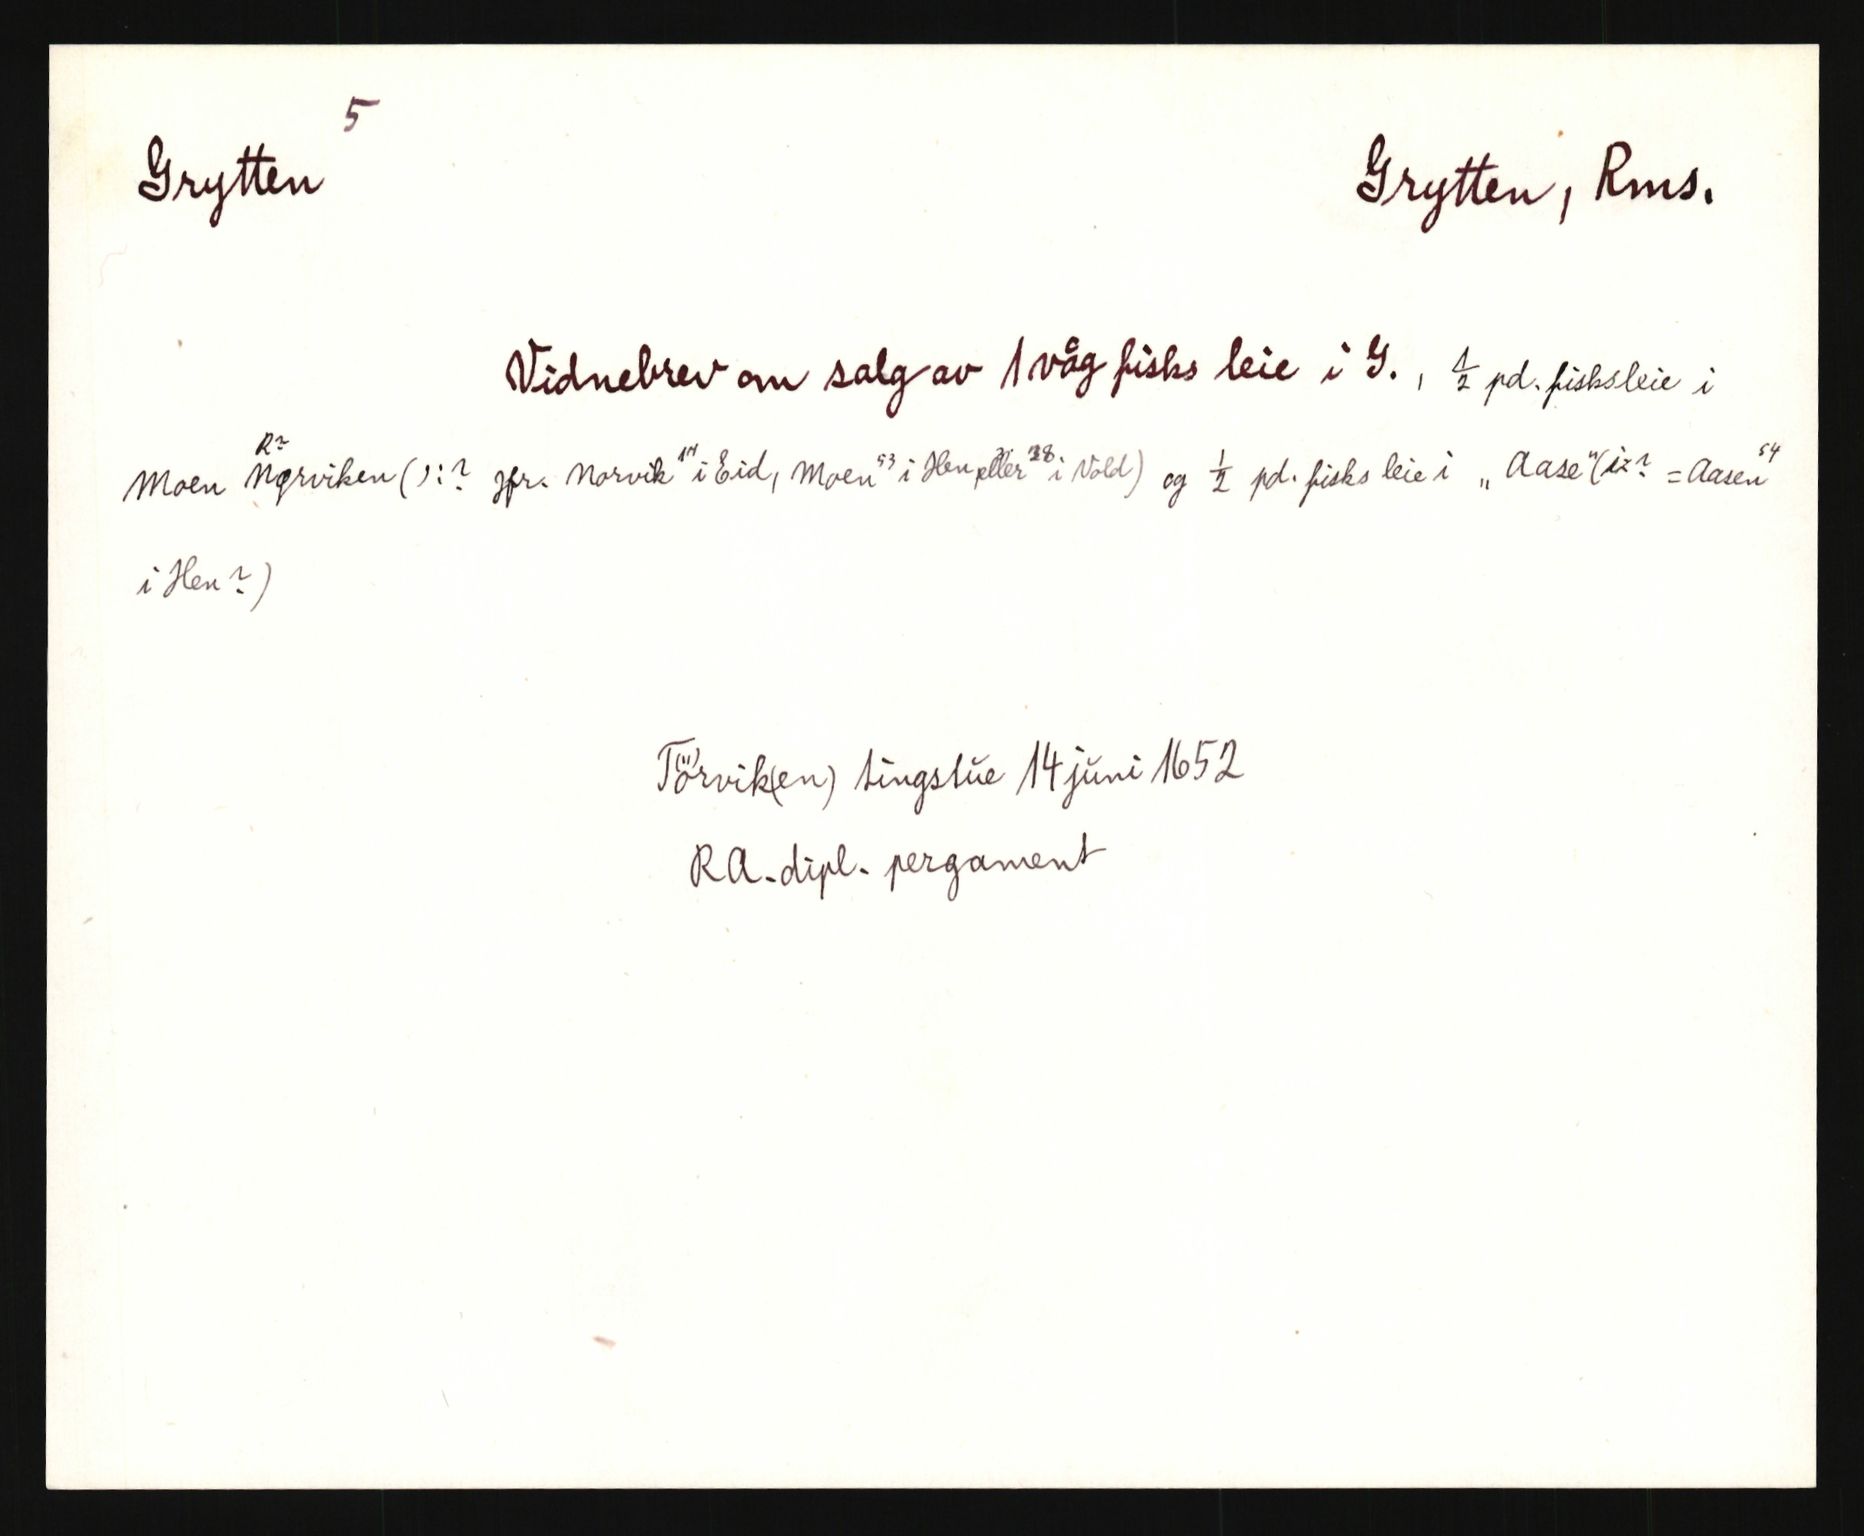 Grytten 5
Grytten, Rms.
Vidnebrev om salg av 1 våg fisks leie i G., 1/2 pd. fisksleie i
R?
Moen Nørviken (ɔ:? jfr. Norvik 14 i Eid, Moen 53 i Hen eller 28 i Vold) og 1/2 pd. fisks leie i „Aase" (i=? = Aasen 54
i Hen?)
Törvik(en) tingstŭe 14 jŭni 1652
RA. dipl. pergament